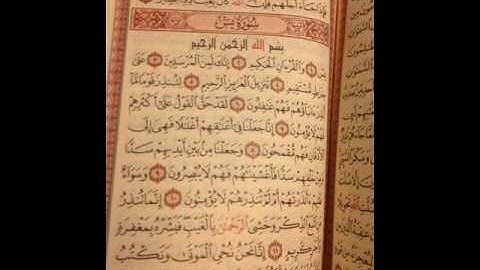 فَإِذَا جَآءَ أَجَلُهُمْ فَإِنَّ ٱللَّهَ كَانَ بِعِبَادِهِۦ
سُورَةُ يسٓ
بِسْمِ ٱللَّهِ ٱلرَّحْمَٰنِ ٱلرَّحِيمِ
يسٓ ١ وَٱلْقُرْءَانِ ٱلْحَكِيمِ ٢ إِنَّكَ لَمِنَ ٱلْمُرْسَلِينَ ٣ عَلَىٰ
صِرَٰطٍ مُّسْتَقِيمٍ ٤ تَنزِيلَ ٱلْعَزِيزِ ٱلرَّحِيمِ ٥ لِتُنذِرَ قَوْمًا مَّآ
أُنذِرَ ءَابَآؤُهُمْ فَهُمْ غَٰفِلُونَ ٦ لَقَدْ حَقَّ ٱلْقَوْلُ عَلَىٰٓ أَكْثَرِهِمْ
فَهُمْ لَا يُؤْمِنُونَ ٧ إِنَّا جَعَلْنَا فِىٓ أَعْنَٰقِهِمْ أَغْلَٰلًا فَهِىَ إِلَى
ٱلْأَذْقَانِ فَهُم مُّقْمَحُونَ ٨ وَجَعَلْنَا مِنۢ بَيْنِ أَيْدِيهِمْ سَدًّا
وَمِنْ خَلْفِهِمْ سَدًّا فَأَغْشَيْنَٰهُمْ فَهُمْ لَا يُبْصِرُونَ ٩ وَسَوَآءٌ
عَلَيْهِمْ ءَأَنذَرْتَهُمْ أَمْ لَمْ تُنذِرْهُمْ لَا يُؤْمِنُونَ ١٠ إِنَّمَا تُنذِرُ
مَنِ ٱتَّبَعَ ٱلذِّكْرَ وَخَشِىَ ٱلرَّحْمَٰنَ بِٱلْغَيْبِ فَبَشِّرْهُ بِمَغْفِرَةٍ
وَأَجْرٍ كَرِيمٍ ١١ إِنَّا نَحْنُ نُحْىِ ٱلْمَوْتَىٰ وَنَكْتُبُ